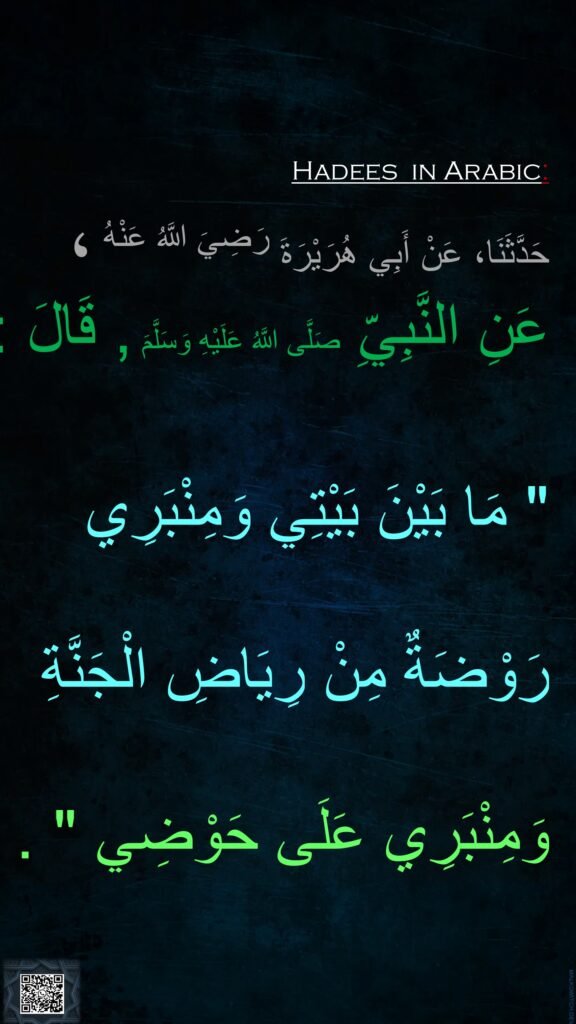 HADEES IN ARABIC:
حَدَّثَنَا، عَنْ أَبِي هُرَيْرَةَ رَضِيَ اللَّهُ عَنْهُ ،
عَنِ النَّبِيِّ صَلَّى اللَّهُ عَلَيْهِ وَسَلَّمَ , قَالَ :
" مَا بَيْنَ بَيْتِي وَمِنْبَرِي
رَوْضَةٌ مِنْ رِيَاضِ الْجَنَّةِ
وَمِنْبَرِي عَلَى حَوْضِي " .